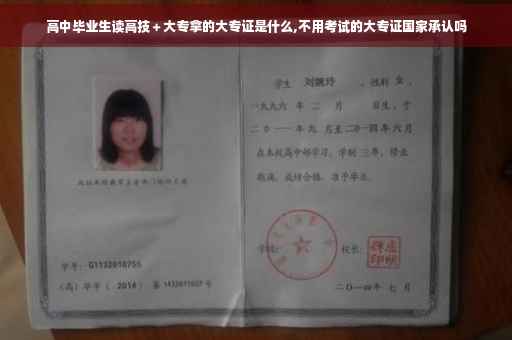 高中毕业生读高技+大专拿的大专证是什么,不用考试的大专证国家承认吗
学生 刘婉玲 ，性别 女 ，
一九九六 年 二 月 日生，于
二〇一一年 九 月至二〇一四年 六 月
在本校高中部学习，学制 三年，修业
期满，成绩合格，准予毕业。
学号：G1132010755
（高）毕字（ 2014 ）第 1432011027 号
学校： 校长：
二〇一四年 七 月